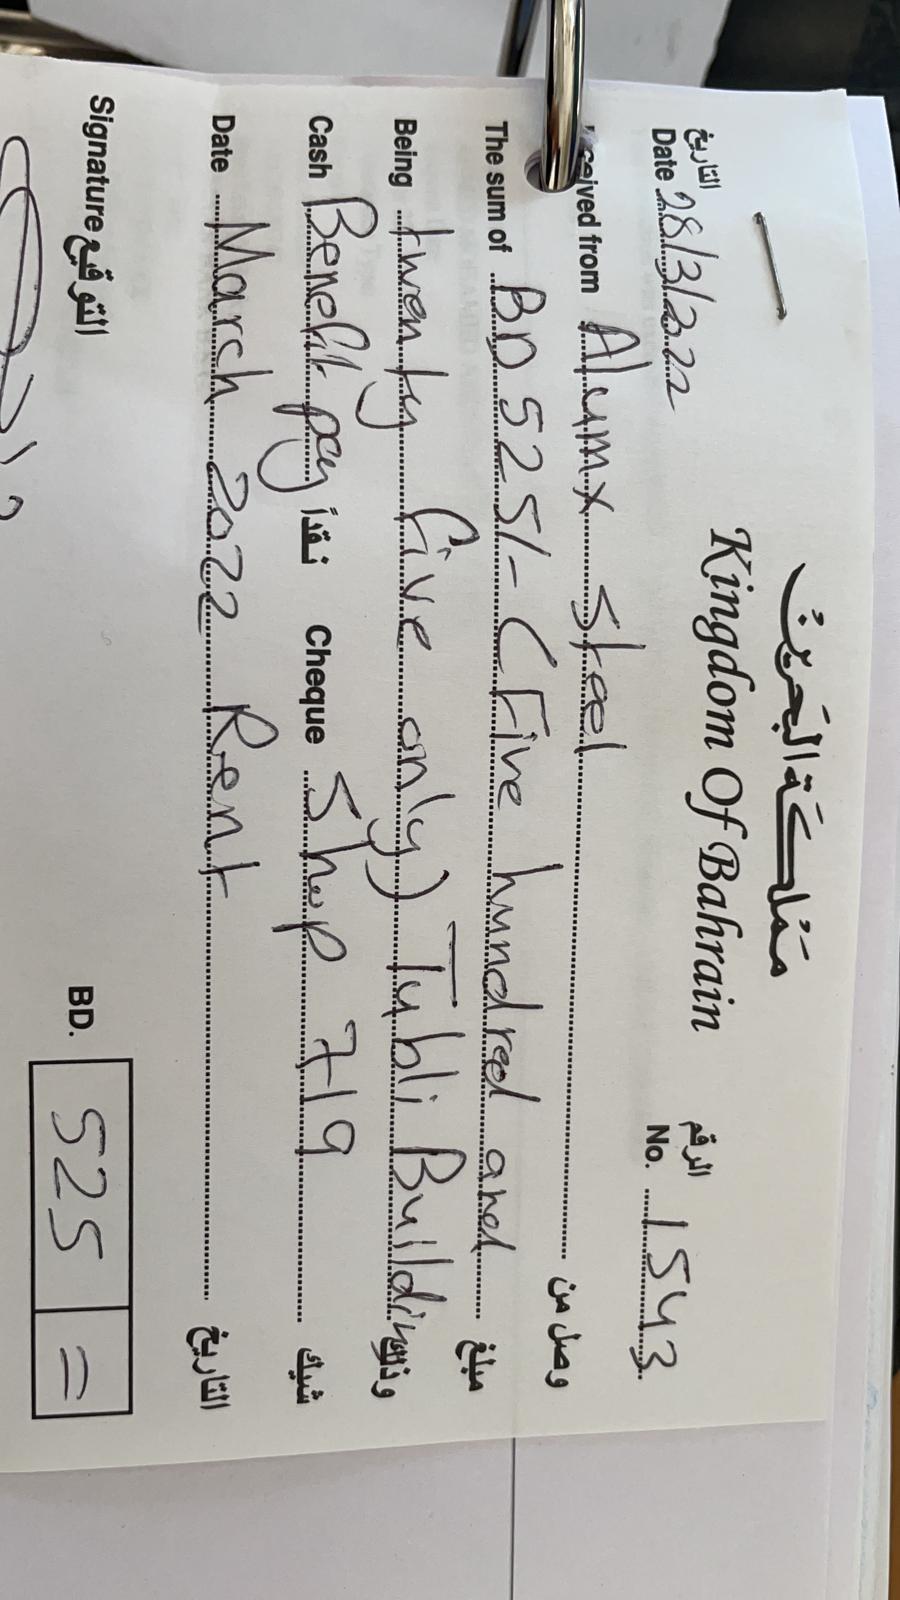 مملكة البحرين
Kingdom Of Bahrain
التاريخ الرقم
Date 28/3/2022 No. 1543
ceived from Alumx Steel وصل من
The sum of BD 525/- (Five hundred and مبلغ
Being twenty five only) Tubli Building وذلك
Cash Benefit pay نقداً Cheque Shop 719 شيك
Date March 2022 Rent التاريخ
Signature التوقيع BD. 525 =